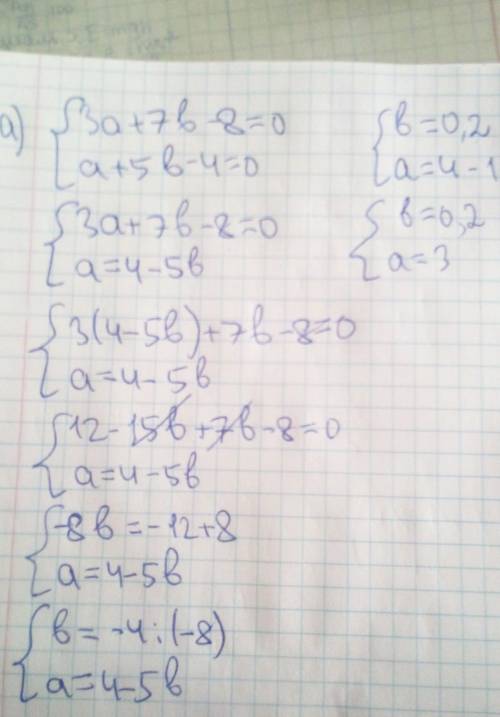 а)
3a+7b-8=0
a+5b-4=0
3a+7b-8=0
a=4-5b
3(4-5b)+7b-8=0
a=4-5b
12-15b+7b-8=0
a=4-5b
-8b=-12+8
a=4-5b
b=-4:(-8)
a=4-5b
b=0,2
a=4-1
b=0,2
a=3